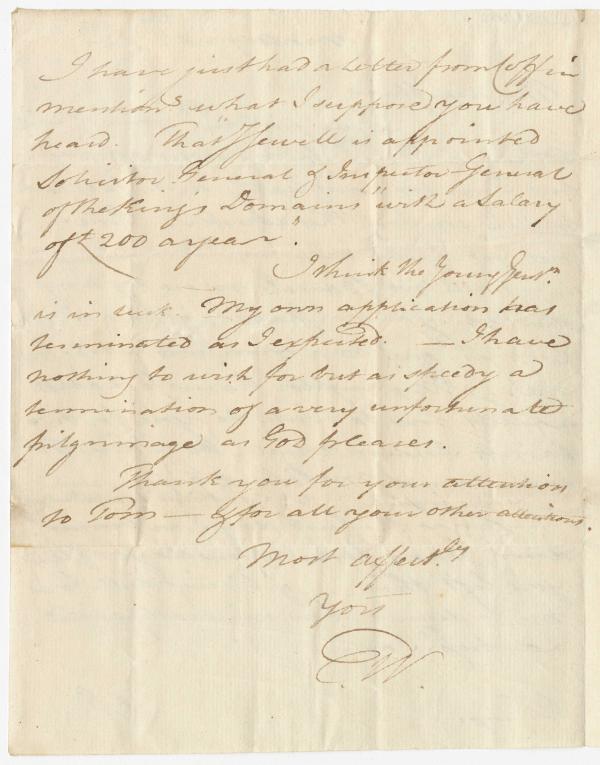 I have just had a Letter from Coffin
mentions what I suppose you have
heard. That "J Sewell is appointed
Solicitor General & Inspector General
of the King's Domains" "with a Salary
of £ 200 a year".
I think the Young Gent.n
is in luck. My own application has
terminated as I expected. — I have
nothing to wish for but as speedy a
termination of a very unfortunate
pilgrimage as God pleases.
Thank you for your attention
to Tom — & for all your other attentions.
Most affect.ly
Yors